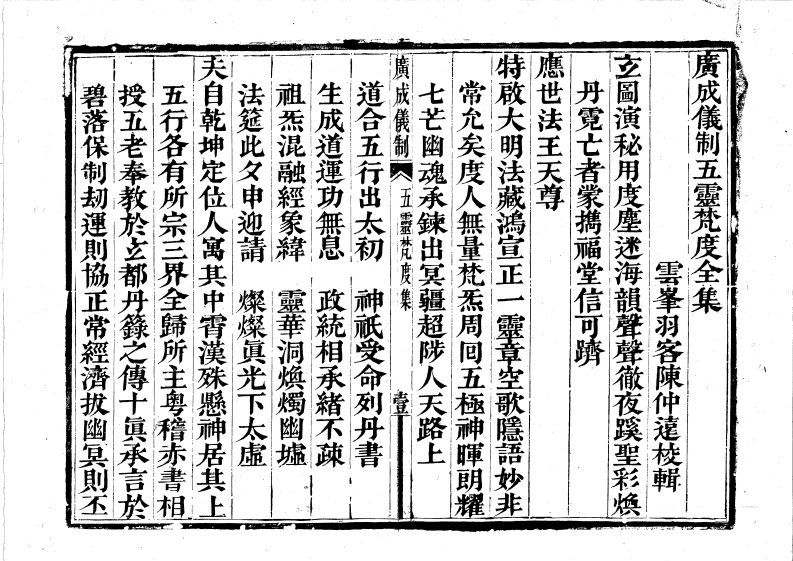 廣成儀制五靈梵度全集
雲峯羽客陳仲遠校輯
玄圖演秘用度塵迷海韻聲聲徹夜蹊聖彩煥
丹霓亡者蒙擕福堂信可躋
應世法王天尊
特啟大明法藏鴻宣正一靈章空歌隱語妙非
常允矣度人無量梵炁周回五極神暉朗耀
七芒幽魂承鍊出冥疆超陟人天路上
廣成儀制 五靈梵度集 壹
道合五行出太初 神祇受命列丹書
生成道運功無息 政統相承緒不疎
祖炁混融經象緯 靈華洞煥燭幽墟
法筵此夕申迎請 燦燦眞光下太虛
夫自乾坤定位人寓其中霄漢殊懸神居其上
五行各有所宗三界全歸所主粵稽赤書相
授五老奉教於玄都丹籙之傳十眞承言於
碧落保制劫運則協正常經濟拔幽冥則丕